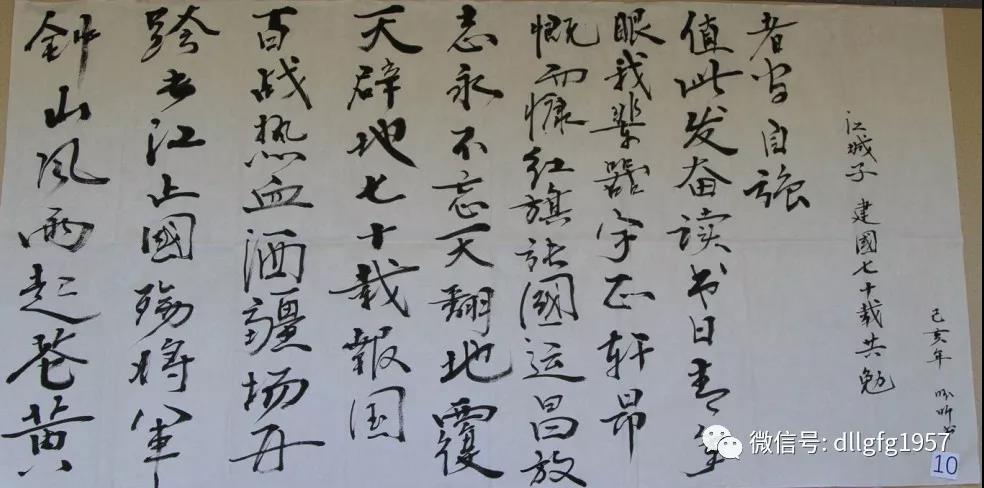 鈡山风雨起苍黄
跨长江止國殇将军
百战热血洒疆场开
天辟地七十载報国
志永不忘天翻地覆
慨而慷红旗张國运昌放
眼我辈器宇正轩昂
值此发奋读书日青年
者自强
江城子 建國七十载共勉
己亥年
微信号: dllgfg1957
10